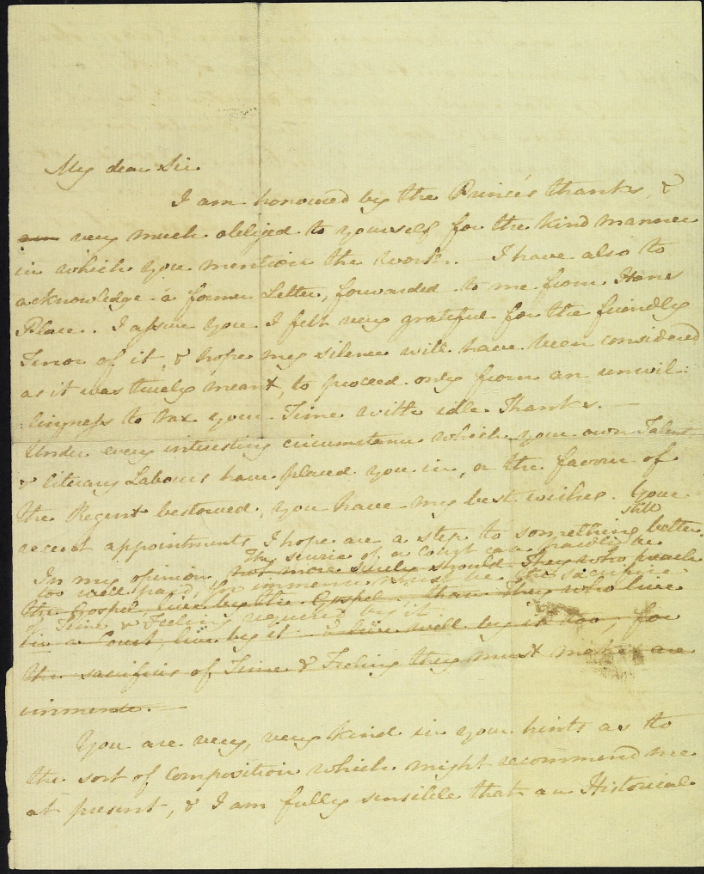 My dear Sir
I am honoured by the Prince's thanks, &
am very much obliged to yourself for the kind manner
in which you mention the Work. I have also to
acknowledge a former Letter, forwarded to me from Hans
Place. I assure you I felt very grateful for the friendly
Tenor of it, & hope my silence will have been considered
as it was truely meant, to proceed only from an unwil-
:lingness to tax your Time with idle Thanks. —
Under every interesting circumstance which your own Talents
& literary Labours have placed you in, or the favour of
the Regent bestowed, you have my best wishes. Your
recent appointments I hope are a step to something still better.
In my opinion not more surely should They who preach
The service of a court can hardly be
too well paid, for immense must be the sacrifice
the Gospel, live by the Gospel, than They who live
of Time & Feeling required by it.
in a Court, live by it — & live well by it too; for
the sacrifices of Time & Feeling they must make are
immense. —
You are very, very kind in your hints as to
the sort of Composition which might recommend me
at present, & I am fully sensible that an Historical